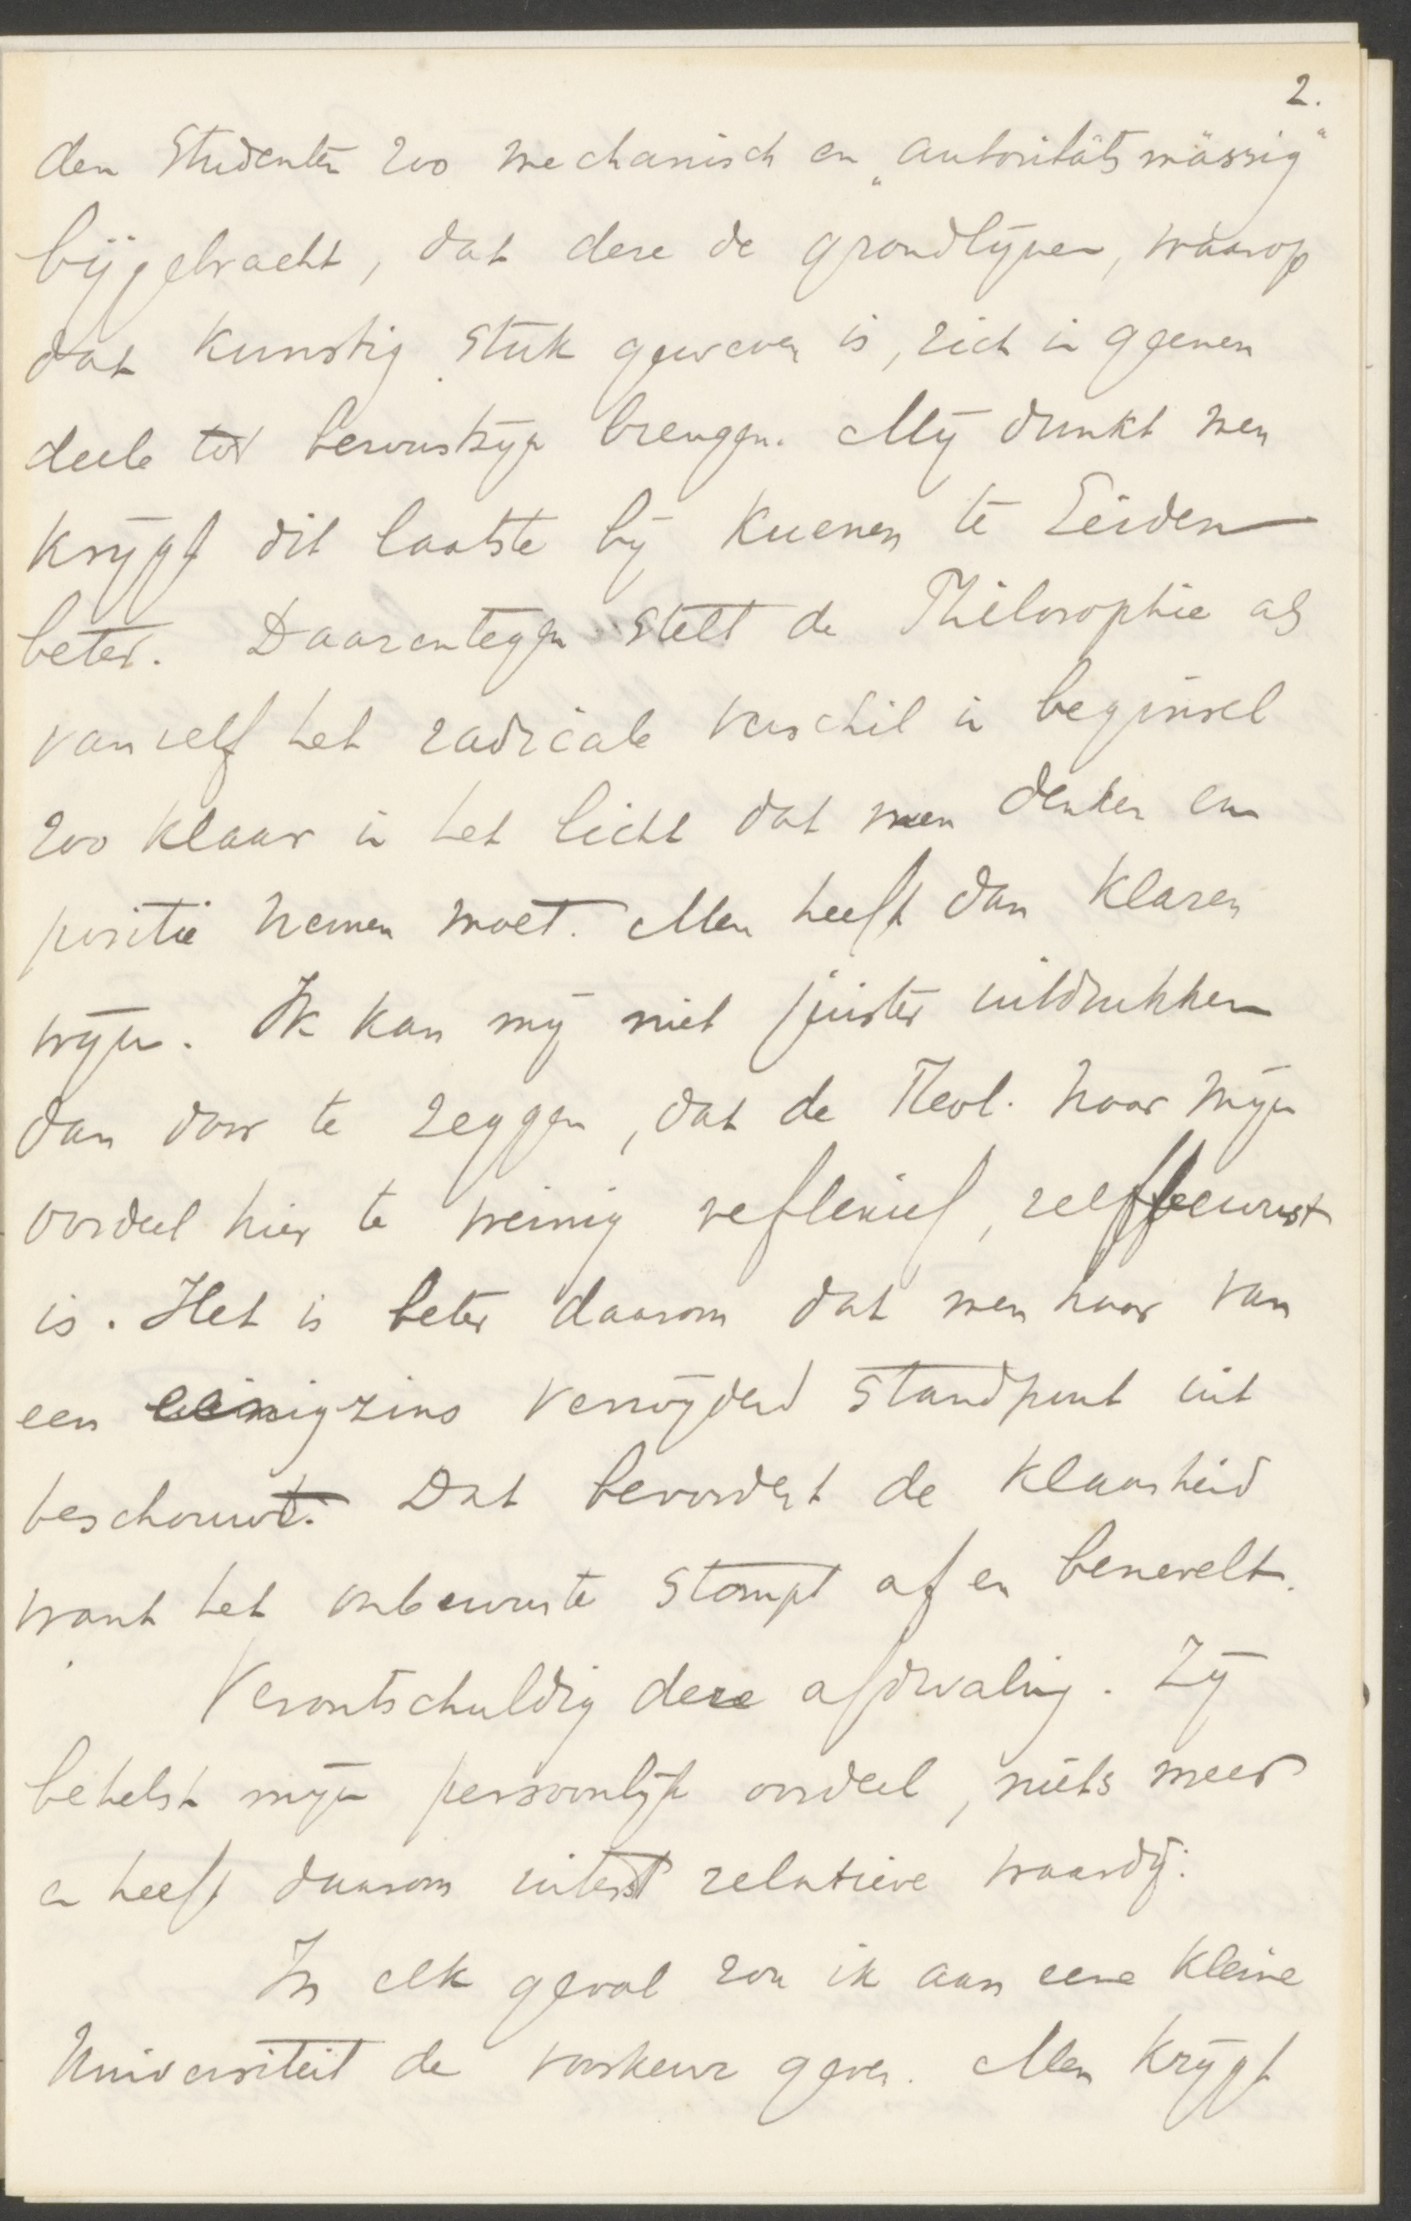 2.
den Studenten zoo mechanisch en „autoritätsmässig"
bijgebracht, dat deze de grondlijnen, waarop
dat kunstig stuk geweven is, zich in geenen
deele tot bewustzijn brengen. Mij dunkt men
krijgt dit laatste bij Kuenen te Leiden
beter. Daarentegen stelt de Philosophie als
van zelf het radicale verschil in beginsel
zoo klaar in het licht dat men denken en
positie nemen moet. Men heeft dan klaren
wijn. Ik kan mij niet juister uitdrukken
dan door te zeggen, dat de Theol. naar mijn
oordeel hier te weinig reflexief, zelfbewust
is. Het is beter daarom dat men haar van
een eenigzins verwijderd standpunt uit
beschouwt. Dat bevordert de klaarheid
want het onbewuste stompt af en benevelt.
Verontschuldig deze afdwaling. Zij
behelst mijn persoonlijk oordeel, niets meer
en heeft daarom uiterst relatieve waardij.
In elk geval zou ik aan eene kleine
Universiteit de voorkeur geven. Men krijgt